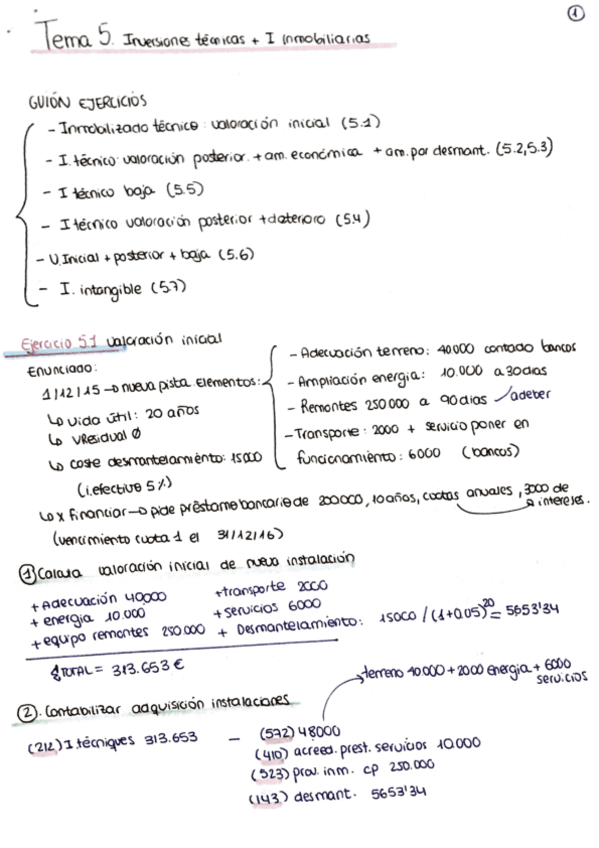 1
Tema 5. Inversiones técnicas + I inmobiliarias
GUIÓN EJERCICIOS
- Inmobilizado técnico: valoración inicial (5.1)
- I. técnico: valoración posterior. + am. económica + am. por desmant. (5.2, 5.3)
- I técnico baja (5.5)
- I técnico valoración posterior + deterioro (5.4)
- V. Inicial + posterior + baja (5.6)
- I. intangible (5.7)
Ejercicio 5.1 valoración inicial
Enunciado:
1/12/15 → nueva pista. Elementos:
↳ vida útil: 20 años
↳ VResidual Ø
↳ coste desmantelamiento: 15000
(i. efectivo 5%)
- Adecuación terreno: 40000 contado bancos
- Ampliación energia: 10.000 a 30 dias
- Remontes 250000 a 90 dias / a deber
- Transporte: 2000 + servicio poner en
funcionamiento: 6000 (bancos)
↳ x financiar → pide préstamo bancario de 200000, 10 años, cuotas anuales, 3000 de
intereses.
(vencimiento cuota 1 el 31/12/16)
① Calcula valoración inicial de nueva instalación
+ Adecuación 40,000 + transporte 2000
+ energia 10.000 + servicios 6000
+ equipo remontes 250.000 + Desmantelamiento: 15000 / (1+0.05)^20 = 5653'34
TOTAL = 313.653 €
② Contabilizar adquisición instalaciones
terreno 40000 + 2000 energia + 6000
servicios
(212) I técniques 313.653 — (572) 48000
(410) acreed. prest. servicios 10.000
(523) prov. inm. cp 250.000
(143) desmant. 5653'34